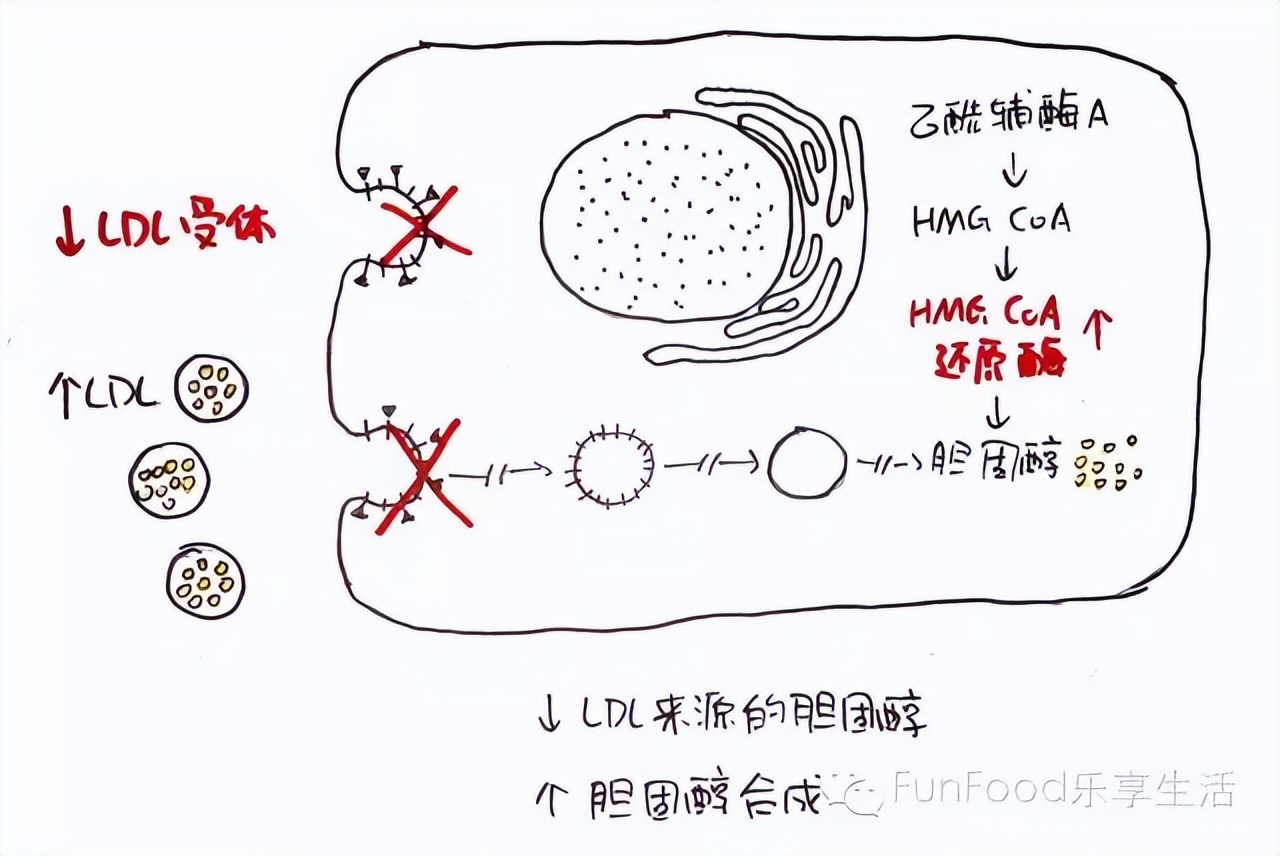 乙酰辅酶A
↓
HMG CoA
↓
HMG CoA ↑
还原酶
↓
↓LDL受体
↑LDL
胆固醇
↓ LDL来源的胆固醇
↑ 胆固醇合成
FunFood乐享生活